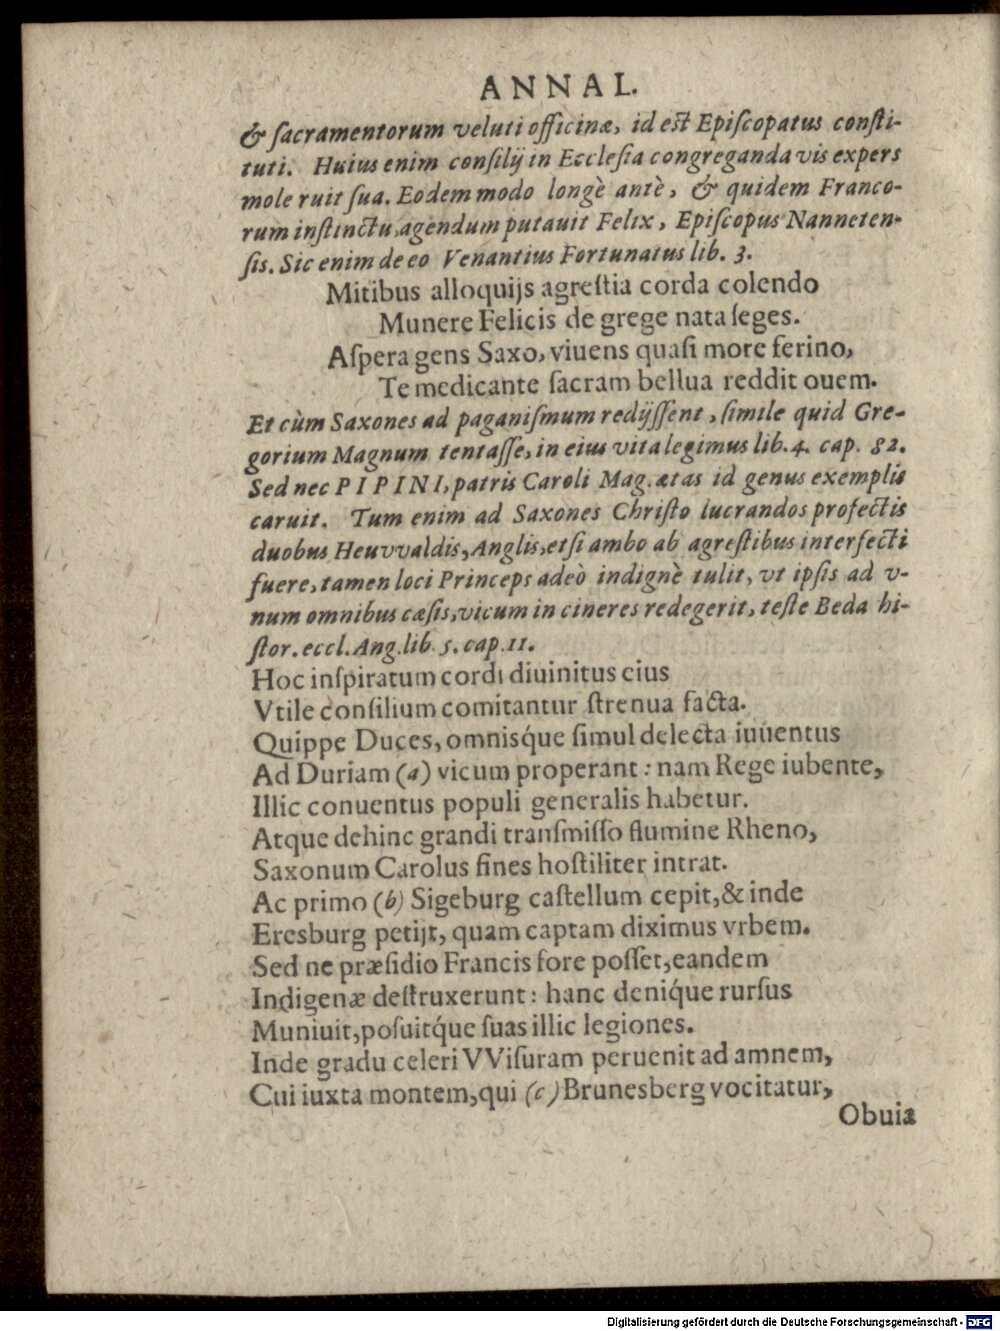 ANNAL.
& ſacramentorum veluti officinæ, id eſt Epiſcopatus conſti-
tuti. Huius enim conſilij in Eccleſia congreganda vis expers
mole ruit ſua. Eodem modo longè antè, & quidem Franco-
rum inſtinctu, agendum putauit Felix, Epiſcopus Nanneten-
ſis. Sic enim de eo Venantius Fortunatus lib. 3.
Mitibus alloquijs agreſtia corda colendo
Munere Felicis de grege nata ſeges.
Aſpera gens Saxo, viuens quaſi more ferino,
Te medicante ſacram bellua reddit ouem.
Et cùm Saxones ad paganiſmum redijſſent, ſimile quid Gre-
gorium Magnum tentaſſe, in eius vita legimus lib. 4. cap. 82.
Sed nec PIPINI, patris Caroli Mag. ætas id genus exemplis
caruit. Tum enim ad Saxones Chriſto lucrandos profectis
duobus Heuvvaldis, Anglis, etſi ambo ab agreſtibus interfecti
fuere, tamen loci Princeps adeò indignè tulit, vt ipſis ad v-
num omnibus cæſis, vicum in cineres redegerit, teſte Beda hi-
ſtor. eccl. Ang. lib. 5. cap. 11.
Hoc inſpiratum cordi diuinitus eius
Vtile conſilium comitantur ſtrenua facta.
Quippe Duces, omnisq́ue ſimul delecta iuuentus
Ad Duriam (a) vicum properant: nam Rege iubente,
Illic conuentus populi generalis habetur.
Atque dehinc grandi tranſmiſſo flumine Rheno,
Saxonum Carolus fines hoſtiliter intrat.
Ac primo (b) Sigeburg caſtellum cepit, & inde
Eresburg petijt, quam captam diximus vrbem.
Sed ne præſidio Francis fore poſſet, eandem
Indigenæ deſtruxerunt: hanc deniq́ue rurſus
Muniuit, poſuitq́ue ſuas illic legiones.
Inde gradu celeri VViſuram peruenit ad amnem,
Cui iuxta montem, qui (c) Brunesberg vocitatur,
Obuia
Digitalisierung gefördert durch die Deutsche Forschungsgemeinschaft - DFG